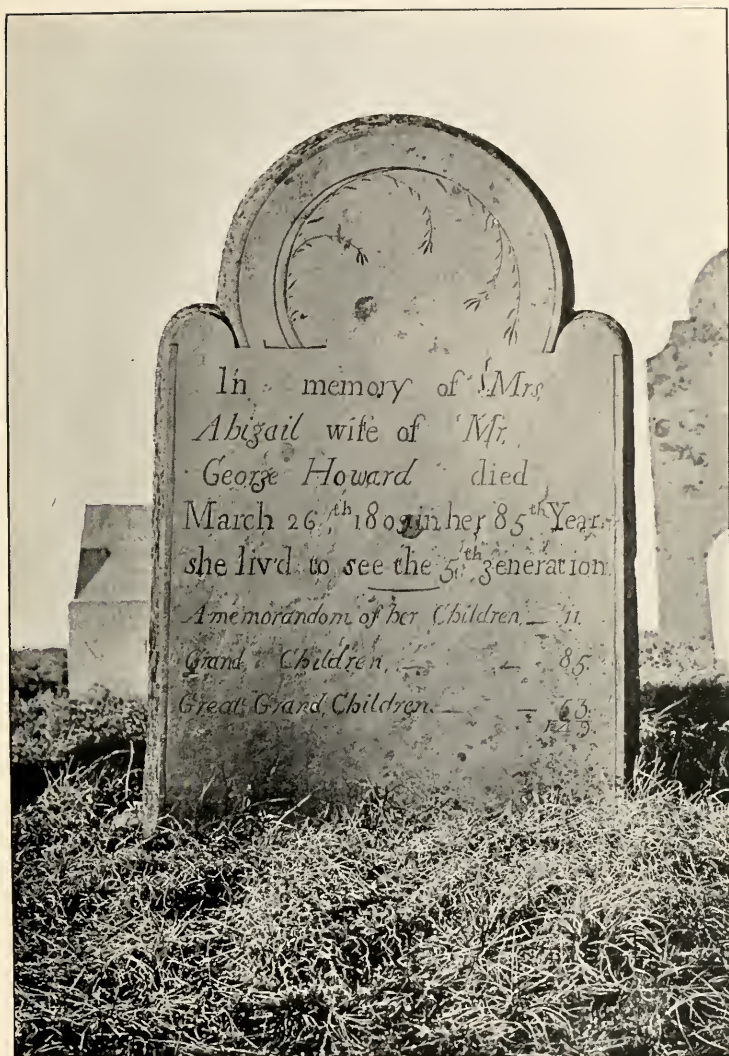 In memory of Mrs,
Abigail wife of Mr,
George Howard died
March 26th 1809 in her 85th Year.
she liv'd to see the 5th generation.
A memorandom of her Children, — 11.
Grand Children, — — 85.
Great Grand Children. — — 63.